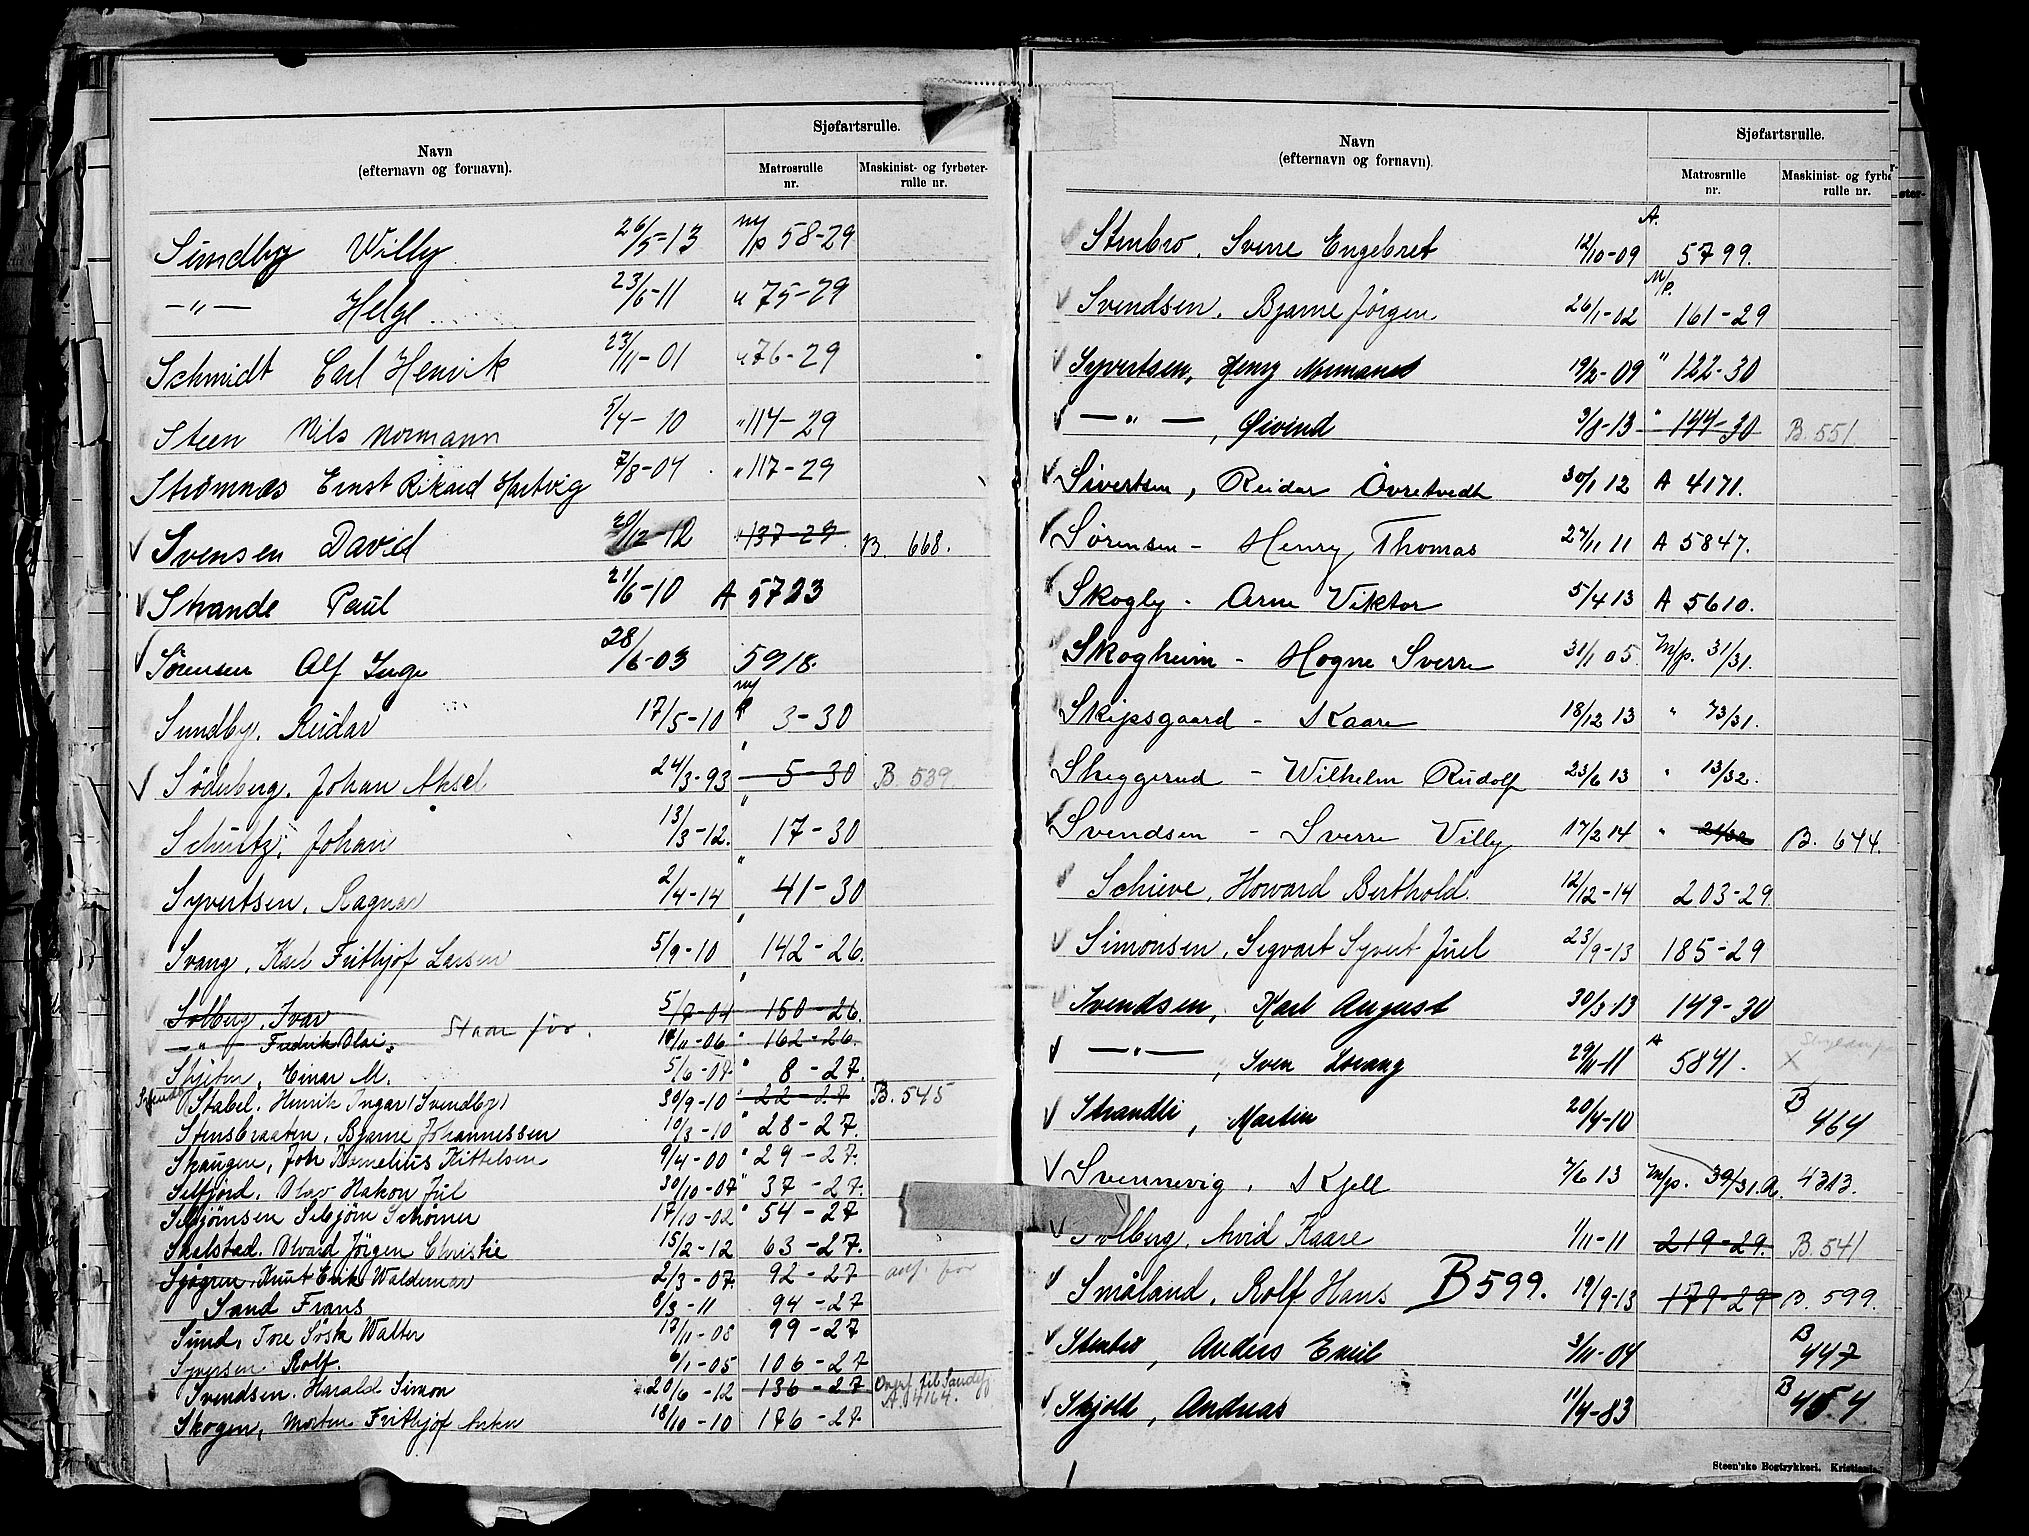 Navn
(efternavn og fornavn).
Sjøfartsrulle.
Matrosrulle nr.
Maskinist- og fyrbøter-rulle nr.
Sundby Willy 26/5-13 ny/p 58-29
—"— Helge 23/6-11 " 75-29
Schmidt Carl Henrik 23/11-01 " 76-29
Steen Nils Normann 5/4-10 " 114-29
Strømnæs Ernst Rikard Hartvig 7/8-04 " 117-29
Svensen David 20/12-12 " 137-29 B. 668.
Strande Paul 21/6-10 A 5723
Sørensen Alf Inge 28/6-03 5918.
Sundby, Reidar 17/5-10 ny P 3-30
Söderberg, Johan Aksel 24/3-93 " 5-30 B. 539.
Schultz, Johan 13/3-12. " 17-30
Syvertsen, Ragnar 2/4-14 " 41-30
Svang, Karl Frithjof Larsen 5/9-10 " 142-26.
Solberg, Ivar 5/7-04 " 150-26.
Staar før.
—"— Fredrik Olai 11/11-06 " 162-26.
Skjeten, Einar M. 5/6-07 " 8-27.
Stabel. Henrik Ingar (Svendby) 30/9-10 " 22-27 B. 545
Stensbraaten, Bjarne Johannessen 10/3-10 " 28-27.
Skaugen, Joh Kornelius Kittelsen 9/4-00 " 29-27.
Selfjord, Olav Hakon Jul 30/10-07 " 37-27.
Selbjørnsen Selbjørn Schømer 17/10-02 " 54-27
Skalstad. Olvard Jörgen Christie 15/2-12 63-27.
Sjøgren, Knut Erik Waldemar 2/3-07. 92-27 anf. før
Sand Frans 8/3-11 94-27
Sund, Tore Søsk Walter 17/11-08 99-27
Syversen Rolf. 6/1-05 106-27
Svendsen. Harald Simon 20/6-12 136-27 Overf. til Sandefj. A. 4164.
Skogen, Morten Frithjof Anker 18/10-10 176-27.
Navn
(efternavn og fornavn).
Sjøfartsrulle.
Matrosrulle nr.
Maskinist- og fyrbø
rulle nr.
Stenbro, Sverre Engebret 12/10-09 A. 5799.
Svendsen, Bjarne Jörgen. 26/1-02 N/P. 161-29
Syvertsen, Henry Normand 19/2-09 " 122-30
—"—, Øivind 3/8-13 " 144-30 B. 551
Sivertsen, Reidar Övretvedt 30/1 12 A 4171.
Sørensen - Henry Thomas 27/11 11 A 5847.
Skogly - Arne Viktor 5/4 13 A 5610.
Skogheim - Hogne Sverre 31/1 05. N/p. 31/31.
Skipsgaard - Kaare 18/12 13 " 73/31.
Skeggerud - Wilhelm Rudolf 23/6 13 " 13/32.
Svendsen - Sverre Villy 17/2 14 " 21/32 B. 644.
Schieve, Howard Berthold. 12/12-14 203-29.
Simonsen, Segvart Syvert Juel 23/9-13 185-29
Svendsen, Karl August 30/3-13 149-30
—"—, Sven Kvang 29/11-11 A 5841. X
Strandli, Martin 20/4-10 B 464
Svennevig, Kjell 7/6 13 N/p. 39/31. A. 4313.
Solberg, Arvid Kaare 1/11-11 219-29. B. 541
Småland, Rolf Hans B 599. 19/9-13 179-29 B. 599.
Stenbro, Anders Emil 3/11-04 B 447
Skjold, Andreas 11/4-83 B 454
Steen'ske Bogtrykkeri. Kristiania.